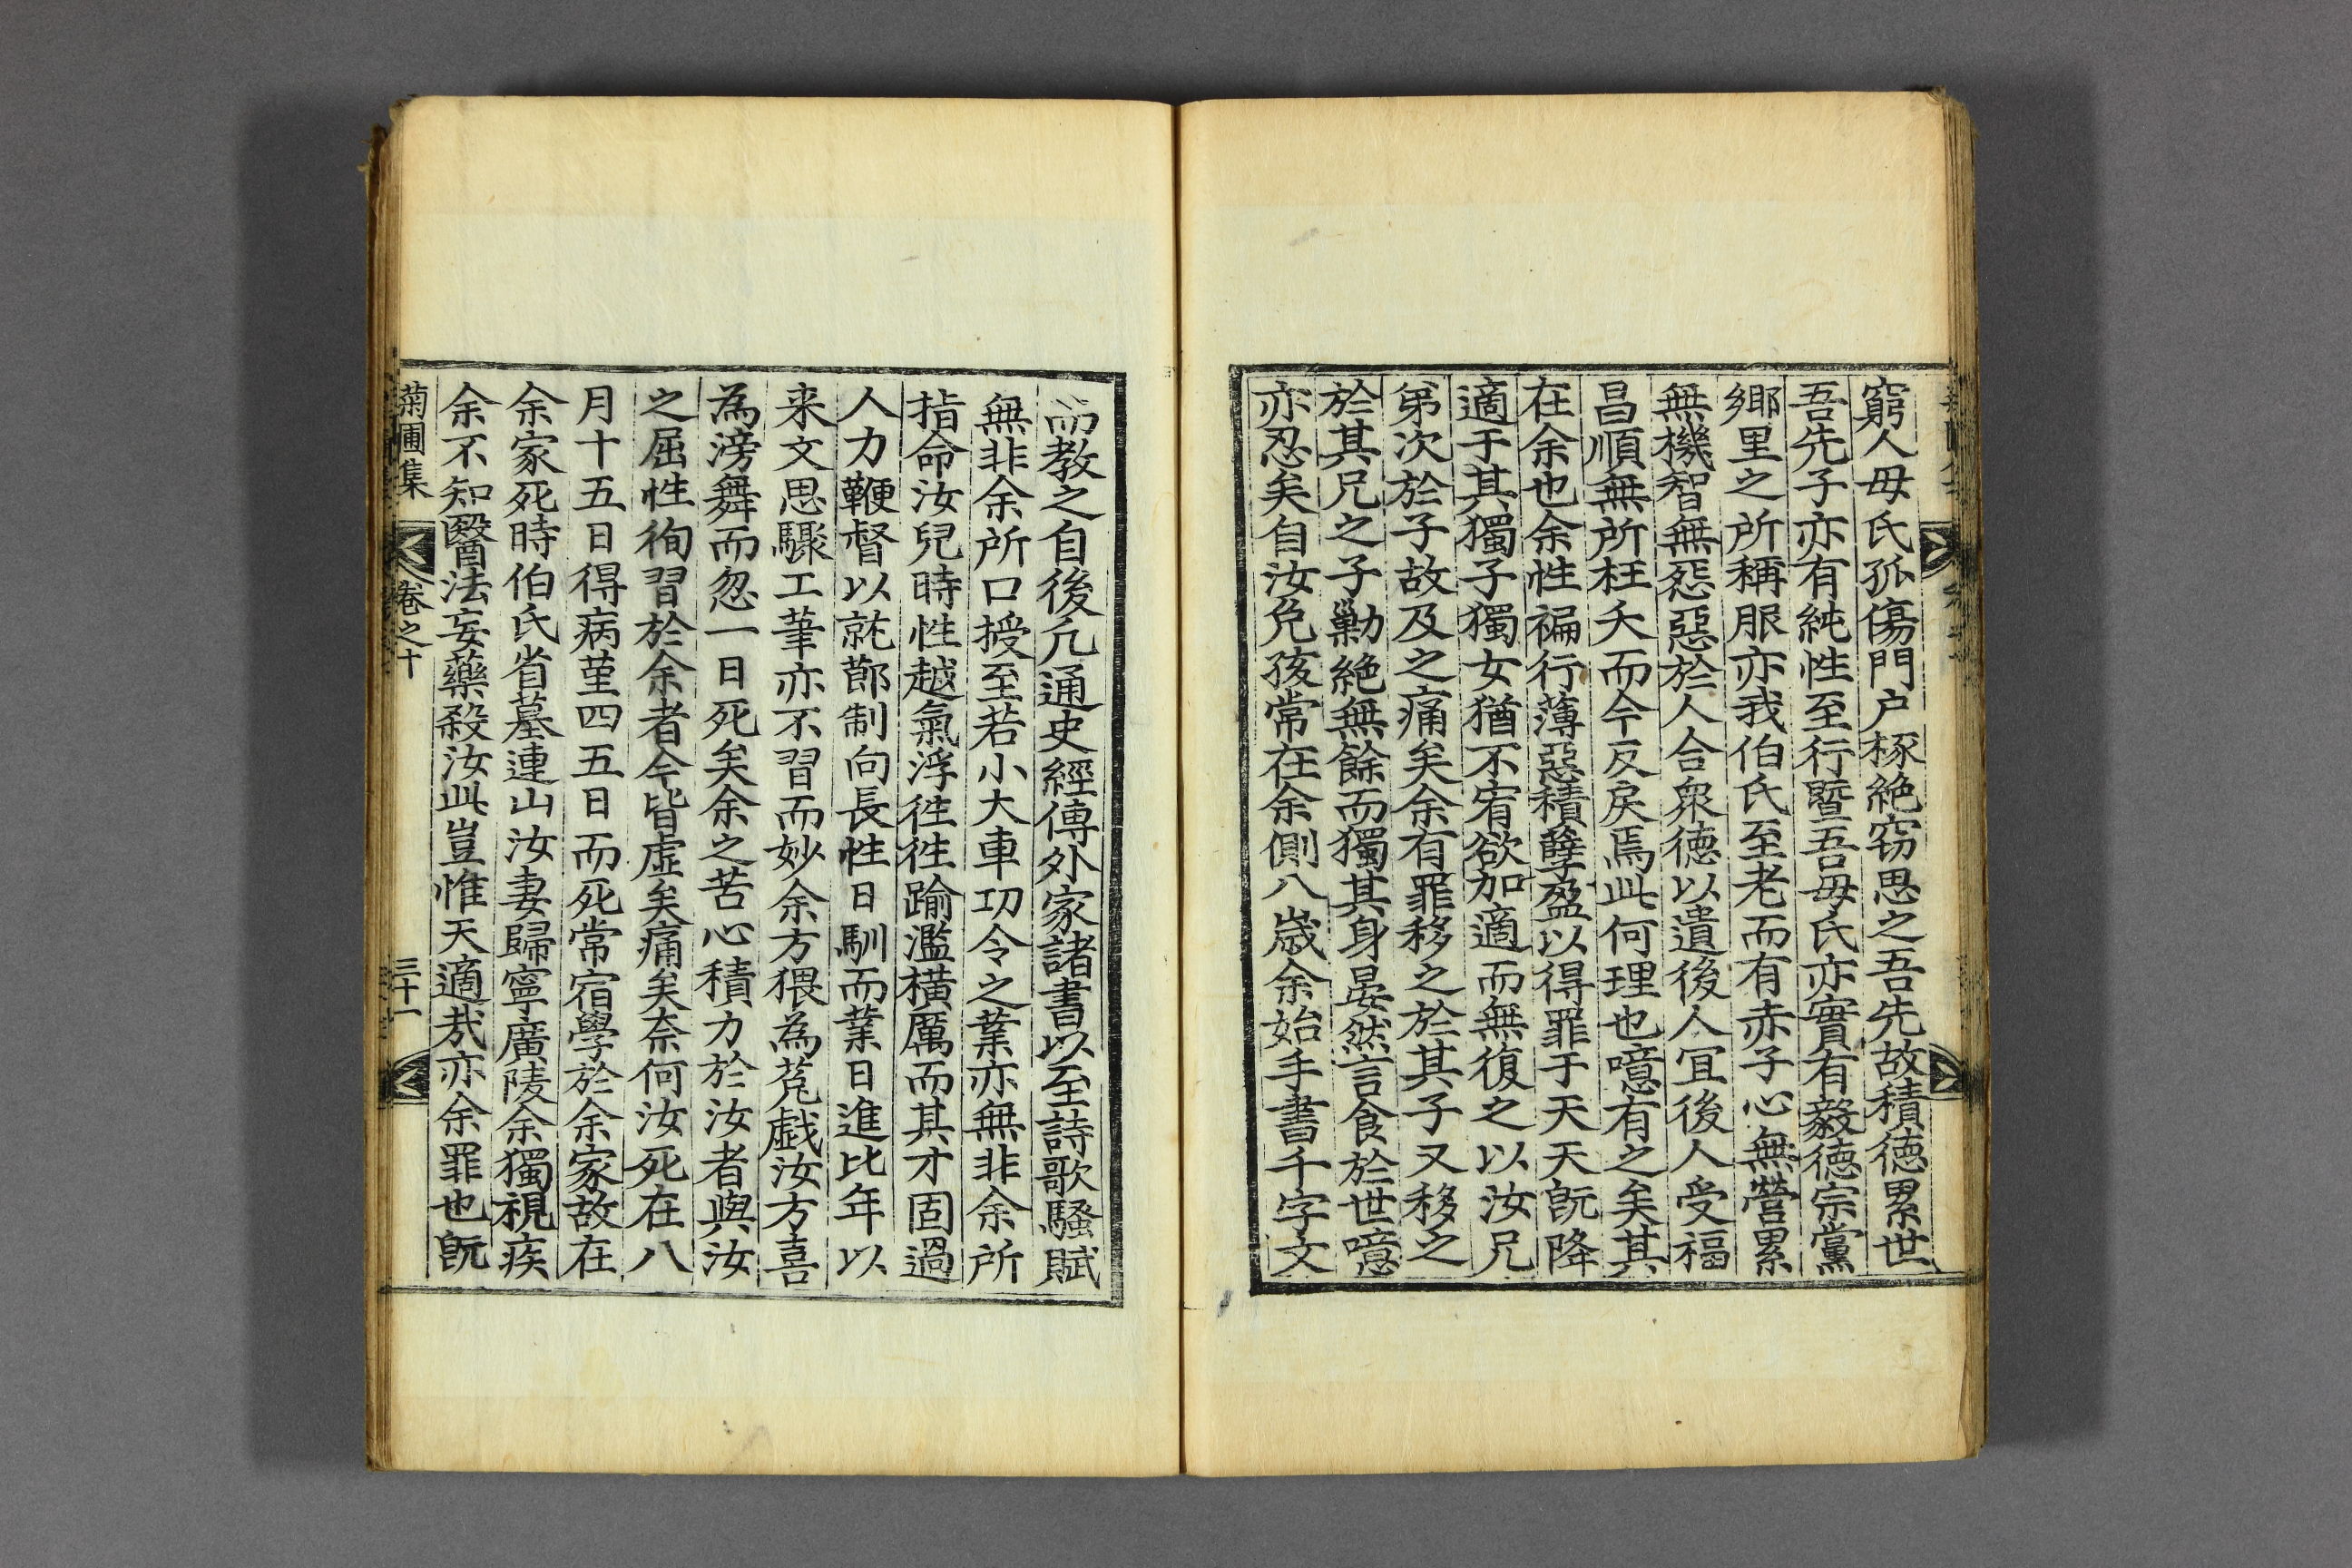 窮人毋氏孤傷門户極絶窃思之吾先故積德累世
吾先子亦有純性至行曁吾毋氏亦實有毅德宗黨
鄉里之所稱服亦我伯氏至老而有赤子心無營累
無機智無怨惡於人合衆德以遺後人冝後人受福
昌順無所枉夭而今反戾焉此何理也噫有之矣其
在余也余性褊行薄惡積孽盈以得罪于天天旣降
適于其獨子獨女猶不宥欲加適而無復之以汝兄
第次於子故及之痛矣余有罪移之於其子又移之
於其兄之子勦絶無餘而獨其身晏然言食於世噫
亦忍矣自汝免孩常在余側八歲余始手書千字文
而教之自後凢通史經傳外家諸書以至詩歌騷賦
無非余所口授至若小大車㓛令之業亦無非余所
指命汝兒時性越氣浮徃徃踰濫橫厲而其才固過
人力鞭督以就節制向長性日馴而業日進比年以
来文思驟工筆亦不習而妙余方猥為荒戱汝方喜
為滂舞而忽一日死矣余之苦心積力於汝者與汝
之屈性徇習於余者今皆虛矣痛矣奈何汝死在八
月十五日得病堇四五日而死常宿學於余家故在
余家死時伯氏省墓連山汝妻歸寧廣陵余獨視疾
余不知醫法妄藥殺汝此豈惟天適㢤亦余罪也旣
菊圃集 卷之十 三十一